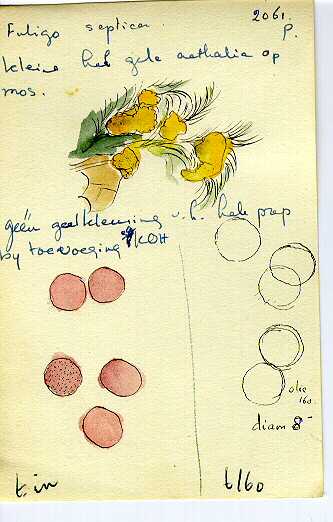 Fuligo septica.
2061.
P.
kleine hel gele aethalia op
mos.
geen geelkleuring v.h. hele prep
by toevoeging KOH
olie
160.
diam 8
t. in
t/60